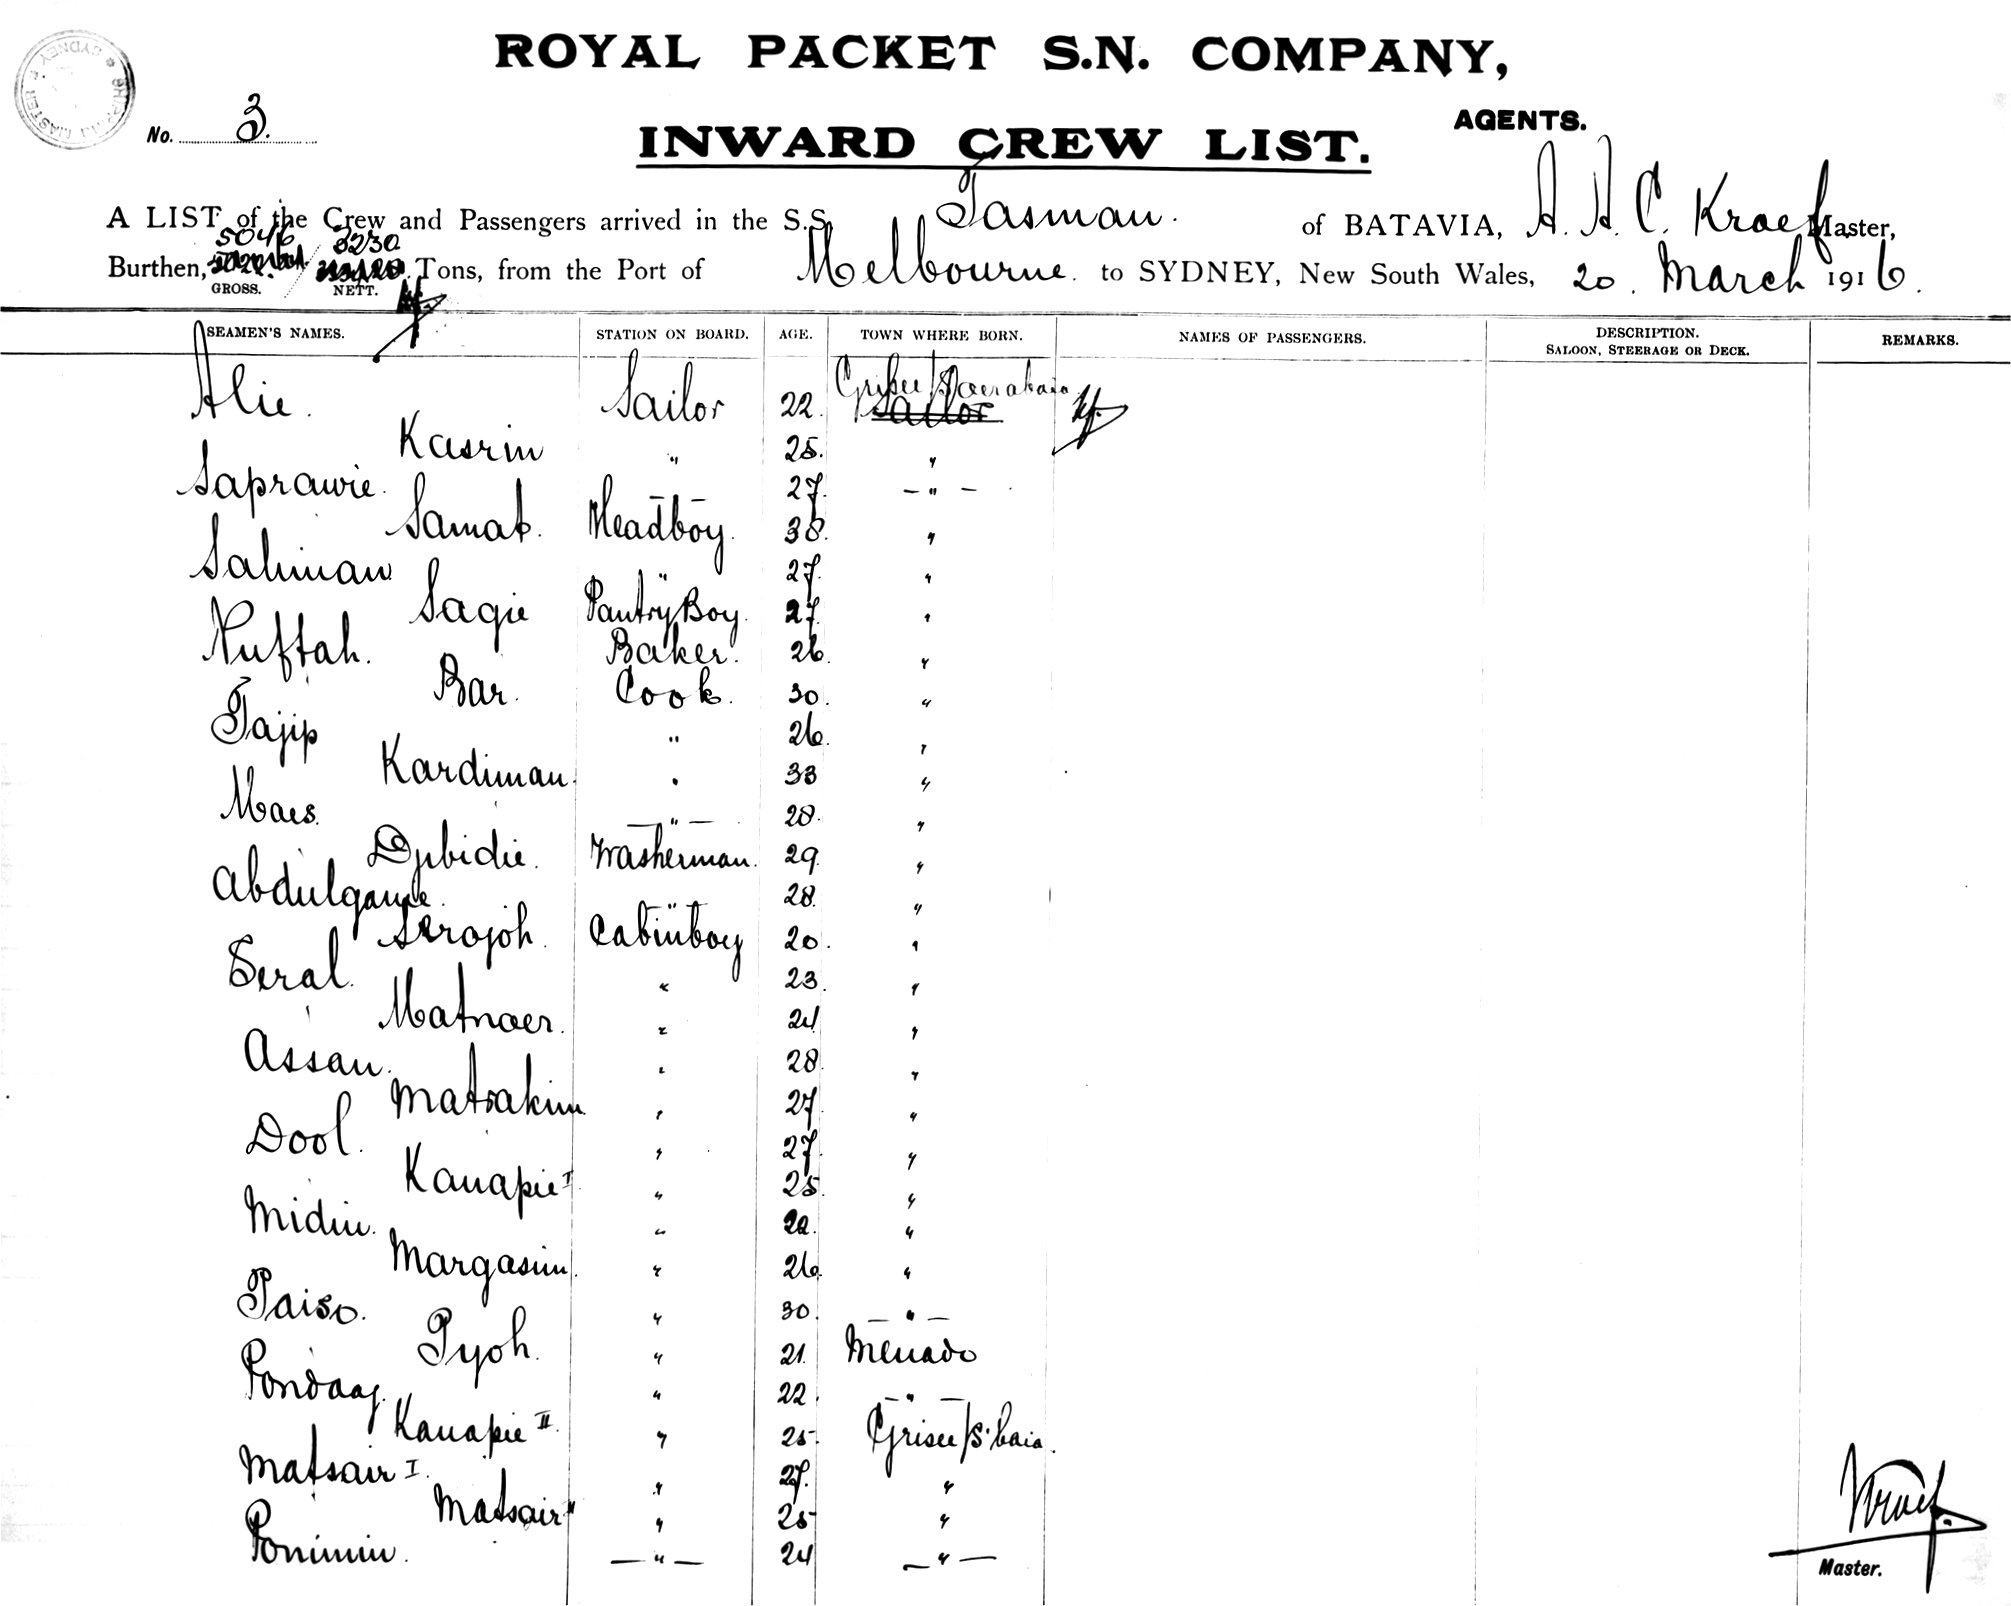 ROYAL PACKET S.N. COMPANY,
AGENTS.
No. 3.
INWARD CREW LIST.
A LIST of the Crew and Passengers arrived in the S.S. Tasman. of BATAVIA, A. A. C. Kraef Master,
5046 / 3230
Burthen, Tons, from the Port of Melbourne. to SYDNEY, New South Wales, 20. March 1916.
GROSS. NETT.
SEAMEN'S NAMES. STATION ON BOARD. AGE. TOWN WHERE BORN. NAMES OF PASSENGERS. DESCRIPTION. SALOON, STEERAGE OR DECK. REMARKS.
Alie. Sailor 22. Grisee/Soerabaia Sailor
Kasrin " 25. "
Saprawie. — " — 27. — " —
Samat. Headboy. 38. "
Saliman " 27. "
Sagie Pantry Boy. 27. "
Nuftah. Baker. 26. "
Bar. Cook. 30. "
Tajip " 26. "
Kardiman. " 33 "
Maes. — " — 28. "
Djibidie. Washerman. 29. "
Abdulganie. — " — 28. "
Serojoh. Cabinboy 20. "
Seral. " 23. "
Matnaer. " 24 "
Assan. " 28. "
Matrakim " 27 "
Dool. " 27. "
Kanapie I " 25. "
Midin. " 22. "
Margasim. " 26. "
Paiso. " 30. — " —
Pyoh. " 21. Menado
Pondaag. " 22. — " —
Kanapie II. " 25. Grisee/S'baia.
Matsair I. " 27. "
Matsair II " 25 "
Ponimin. — " — 24 — " —
Kraef.
Master.